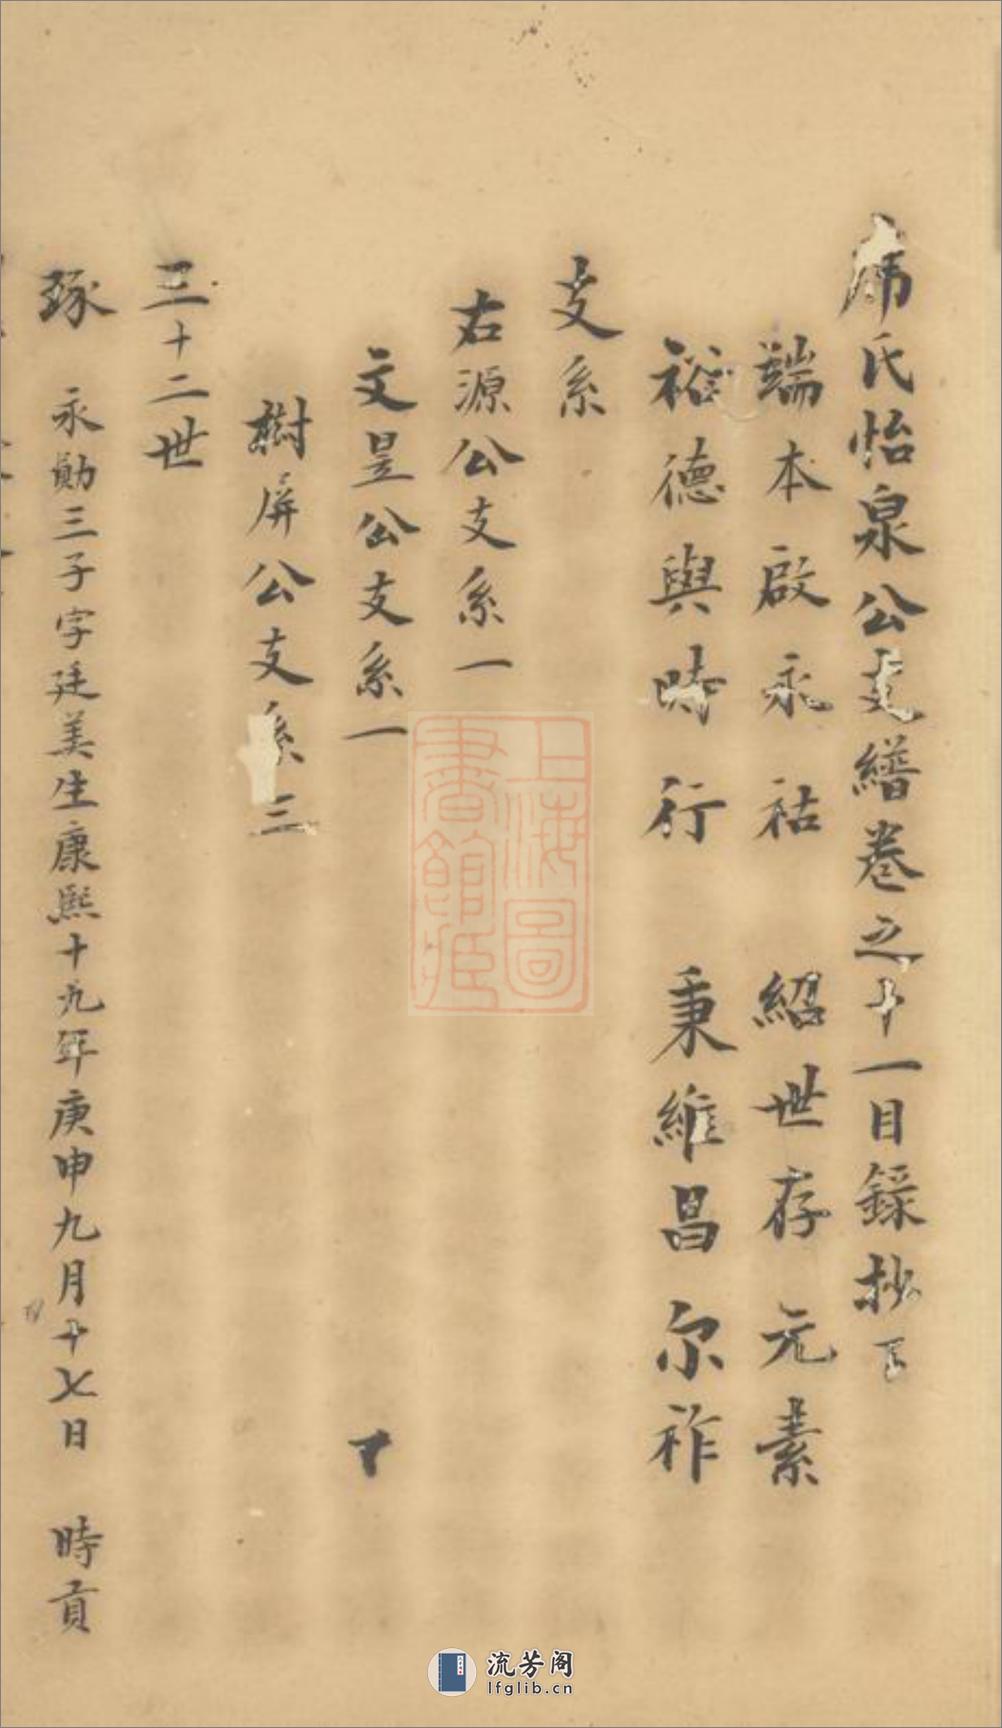 席氏怡泉公支繕卷之十一目錄抄下
端本啟永祜　紹世存元素
裕德與時行　秉維昌尔祚
支系
右源公支系一
文昱公支系一
樹屏公支系三
三十二世
琢　永勛三子字廷美生康熙十九年庚申九月十七日　時貢
上海圖書館藏
流芳阁
lfglib.cn